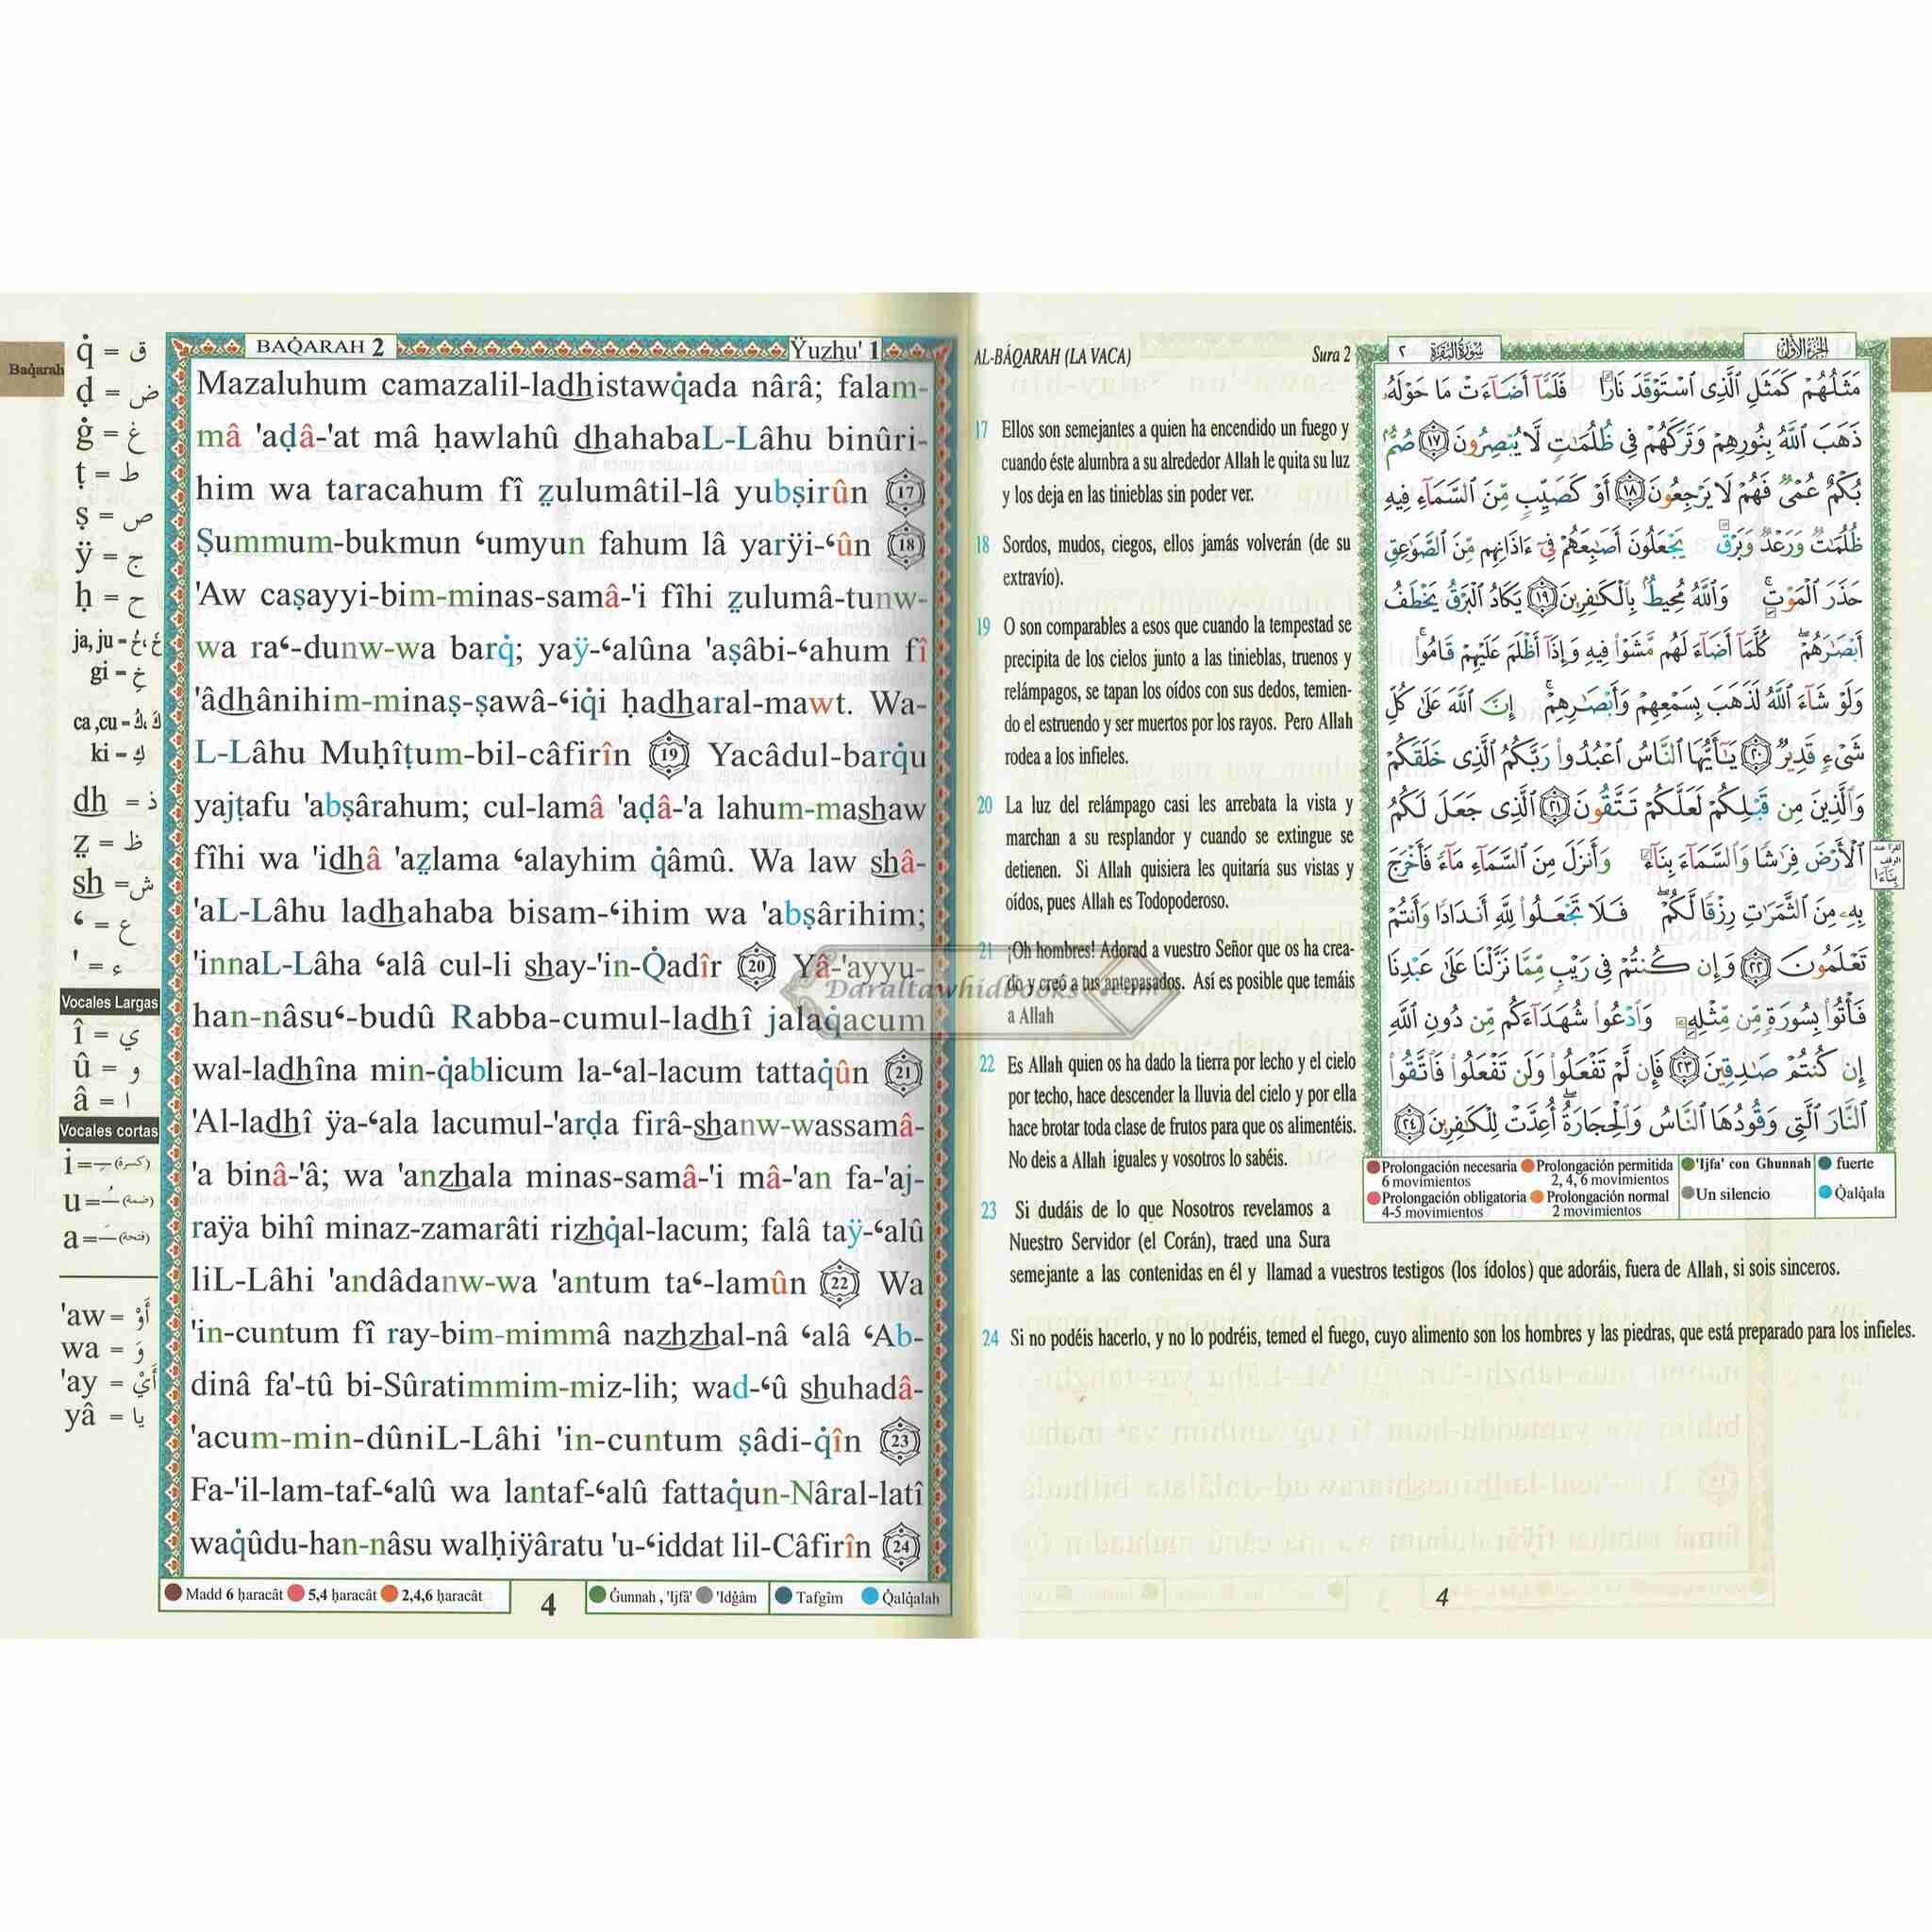 Baqarah
q̇ = ق
ḍ = ض
ġ = غ
ṭ = ط
ṣ = ص
ÿ = ج
ḥ = ح
ja, ju - خَ، خُ
gi - خِ
ca ,cu - كَ، كُ
ki - كِ
dh = ذ
ẓ = ظ
sh = ش
ʿ = ع
' = ء
Vocales Largas
î = ي
û = و
â = ا
Vocales cortas
i = ـِ (كسرة)
u = ـُ (ضمة)
a = ـَ (فتحة)
'aw = أَوْ
wa = وَ
'ay = أَيْ
yâ = يا
BAQ̇ARAH 2
Ÿuzhu' 1
Mazaluhum camazalil-ladhistawq̇ada nârâ; falam-
mâ 'aḍâ-'at mâ ḥawlahû dhahabaL-Lâhu binûri-
him wa taracahum fî ẓulumâtil-lâ yubṣirûn 17
Ṣummum-bukmun ʿumyun fahum lâ yarÿi-ʿûn 18
'Aw caṣayyi-bim-minas-samâ-'i fîhi ẓulumâ-tunw-
wa raʿ-dunw-wa barq̇; yaÿ-ʿalûna 'aṣâbi-ʿahum fî
'âdhânihim-minaṣ-ṣawâ-ʿiq̇i ḥadharal-mawt. Wa-
L-Lâhu Muḥîṭum-bil-câfirîn 19 Yacâdul-barq̇u
yajṭafu 'abṣârahum; cul-lamâ 'aḍâ-'a lahum-mashaw
fîhi wa 'idhâ 'aẓlama ʿalayhim q̇âmû. Wa law shâ-
'aL-Lâhu ladhahaba bisam-ʿihim wa 'abṣârihim;
'innaL-Lâha ʿalâ cul-li shay-'in-Q̇adîr 20 Yâ-'ayyu-
han-nâsuʿ-budû Rabba-cumul-ladhî jalaq̇acum
wal-ladhîna min-q̇ablicum la-ʿal-lacum tattaq̇ûn 21
'Al-ladhî ÿa-ʿala lacumul-'arḍa firâ-shanw-wassamâ-
'a binâ-'â; wa 'anzhala minas-samâ-'i mâ-'an fa-'aj-
raÿa bihî minaz-zamarâti rizhq̇al-lacum; falâ taÿ-ʿalû
liL-Lâhi 'andâdanw-wa 'antum taʿ-lamûn 22 Wa
'in-cuntum fî ray-bim-mimmâ nazhzhal-nâ ʿalâ ʿAb-
dinâ fa'-tû bi-Sûratimmim-miz-lih; wad-ʿû shuhadâ-
'acum-min-dûniL-Lâhi 'in-cuntum ṣâdi-q̇în 23
Fa-'il-lam-taf-ʿalû wa lantaf-ʿalû fattaq̇un-Nâral-latî
waq̇ûdu-han-nâsu walḥiÿâratu 'u-ʿiddat lil-Câfirîn 24
Madd 6 ḥaracât 5,4 ḥaracât 2,4,6 ḥaracât
4
Ġunnah , 'Ijfâ' 'Idġâm Tafgîm Q̇alq̇alah
AL-BÁQARAH (LA VACA)
Sura 2
17 Ellos son semejantes a quien ha encendido un fuego y
cuando éste alumbra a su alrededor Allah le quita su luz
y los deja en las tinieblas sin poder ver.
18 Sordos, mudos, ciegos, ellos jamás volverán (de su
extravío).
19 O son comparables a esos que cuando la tempestad se
precipita de los cielos junto a las tinieblas, truenos y
relámpagos, se tapan los oídos con sus dedos, temien-
do el estruendo y ser muertos por los rayos. Pero Allah
rodea a los infieles.
20 La luz del relámpago casi les arrebata la vista y
marchan a su resplandor y cuando se extingue se
detienen. Si Allah quisiera les quitaría sus vistas y
oídos, pues Allah es Todopoderoso.
21 ¡Oh hombres! Adorad a vuestro Señor que os ha crea-
do y creó a tus antepasados. Así es posible que temáis
a Allah
22 Es Allah quien os ha dado la tierra por lecho y el cielo
por techo, hace descender la lluvia del cielo y por ella
hace brotar toda clase de frutos para que os alimentéis.
No deis a Allah iguales y vosotros lo sabéis.
23 Si dudáis de lo que Nosotros revelamos a
Nuestro Servidor (el Corán), traed una Sura
semejante a las contenidas en él y llamad a vuestros testigos (los ídolos) que adoráis, fuera de Allah, si sois sinceros.
24 Si no podéis hacerlo, y no lo podréis, temed el fuego, cuyo alimento son los hombres y las piedras, que está preparado para los infieles.
4
الجزء الأول
سورة البقرة ٢
مَثَلُهُمْ كَمَثَلِ ٱلَّذِى ٱسْتَوْقَدَ نَارًا فَلَمَّآ أَضَآءَتْ مَا حَوْلَهُۥ
ذَهَبَ ٱللَّهُ بِنُورِهِمْ وَتَرَكَهُمْ فِى ظُلُمَٰتٍ لَّا يُبْصِرُونَ ١٧ صُمٌّۢ
بُكْمٌ عُمْىٌ فَهُمْ لَا يَرْجِعُونَ ١٨ أَوْ كَصَيِّبٍ مِّنَ ٱلسَّمَآءِ فِيهِ
ظُلُمَٰتٌ وَرَعْدٌ وَبَرْقٌ يَجْعَلُونَ أَصَٰبِعَهُمْ فِىٓ ءَاذَانِهِم مِّنَ ٱلصَّوَٰعِقِ
حَذَرَ ٱلْمَوْتِ ۚ وَٱللَّهُ مُحِيطٌۢ بِٱلْكَٰفِرِينَ ١٩ يَكَادُ ٱلْبَرْقُ يَخْطَفُ
أَبْصَٰرَهُمْ ۖ كُلَّمَآ أَضَآءَ لَهُم مَّشَوْا۟ فِيهِ وَإِذَآ أَظْلَمَ عَلَيْهِمْ قَامُوا۟ ۚ
وَلَوْ شَآءَ ٱللَّهُ لَذَهَبَ بِسَمْعِهِمْ وَأَبْصَٰرِهِمْ ۚ إِنَّ ٱللَّهَ عَلَىٰ كُلِّ
شَىْءٍ قَدِيرٌ ٢٠ يَٰٓأَيُّهَا ٱلنَّاسُ ٱعْبُدُوا۟ رَبَّكُمُ ٱلَّذِى خَلَقَكُمْ
وَٱلَّذِينَ مِن قَبْلِكُمْ لَعَلَّكُمْ تَتَّقُونَ ٢١ ٱلَّذِى جَعَلَ لَكُمُ
ٱلْأَرْضَ فِرَٰشًا وَٱلسَّمَآءَ بِنَآءً وَأَنزَلَ مِنَ ٱلسَّمَآءِ مَآءً فَأَخْرَجَ
بِهِۦ مِنَ ٱلثَّمَرَٰتِ رِزْقًا لَّكُمْ ۖ فَلَا تَجْعَلُوا۟ لِلَّهِ أَندَادًا وَأَنتُمْ
تَعْلَمُونَ ٢٢ وَإِن كُنتُمْ فِى رَيْبٍ مِّمَّا نَزَّلْنَا عَلَىٰ عَبْدِنَا
فَأْتُوا۟ بِسُورَةٍ مِّن مِّثْلِهِۦ وَٱدْعُوا۟ شُهَدَآءَكُم مِّن دُونِ ٱللَّهِ
إِن كُنتُمْ صَٰدِقِينَ ٢٣ فَإِن لَّمْ تَفْعَلُوا۟ وَلَن تَفْعَلُوا۟ فَٱتَّقُوا۟
ٱلنَّارَ ٱلَّتِى وَقُودُهَا ٱلنَّاسُ وَٱلْحِجَارَةُ ۖ أُعِدَّتْ لِلْكَٰفِرِينَ ٢٤
Prolongación necesaria 6 movimientos
Prolongación permitida 2, 4, 6 movimientos
'Ijfa' con Ghunnah
fuerte
Prolongación obligatoria 4-5 movimientos
Prolongación normal 2 movimientos
Un silencio
Q̇alq̇ala
Daraltawhidbooks .com